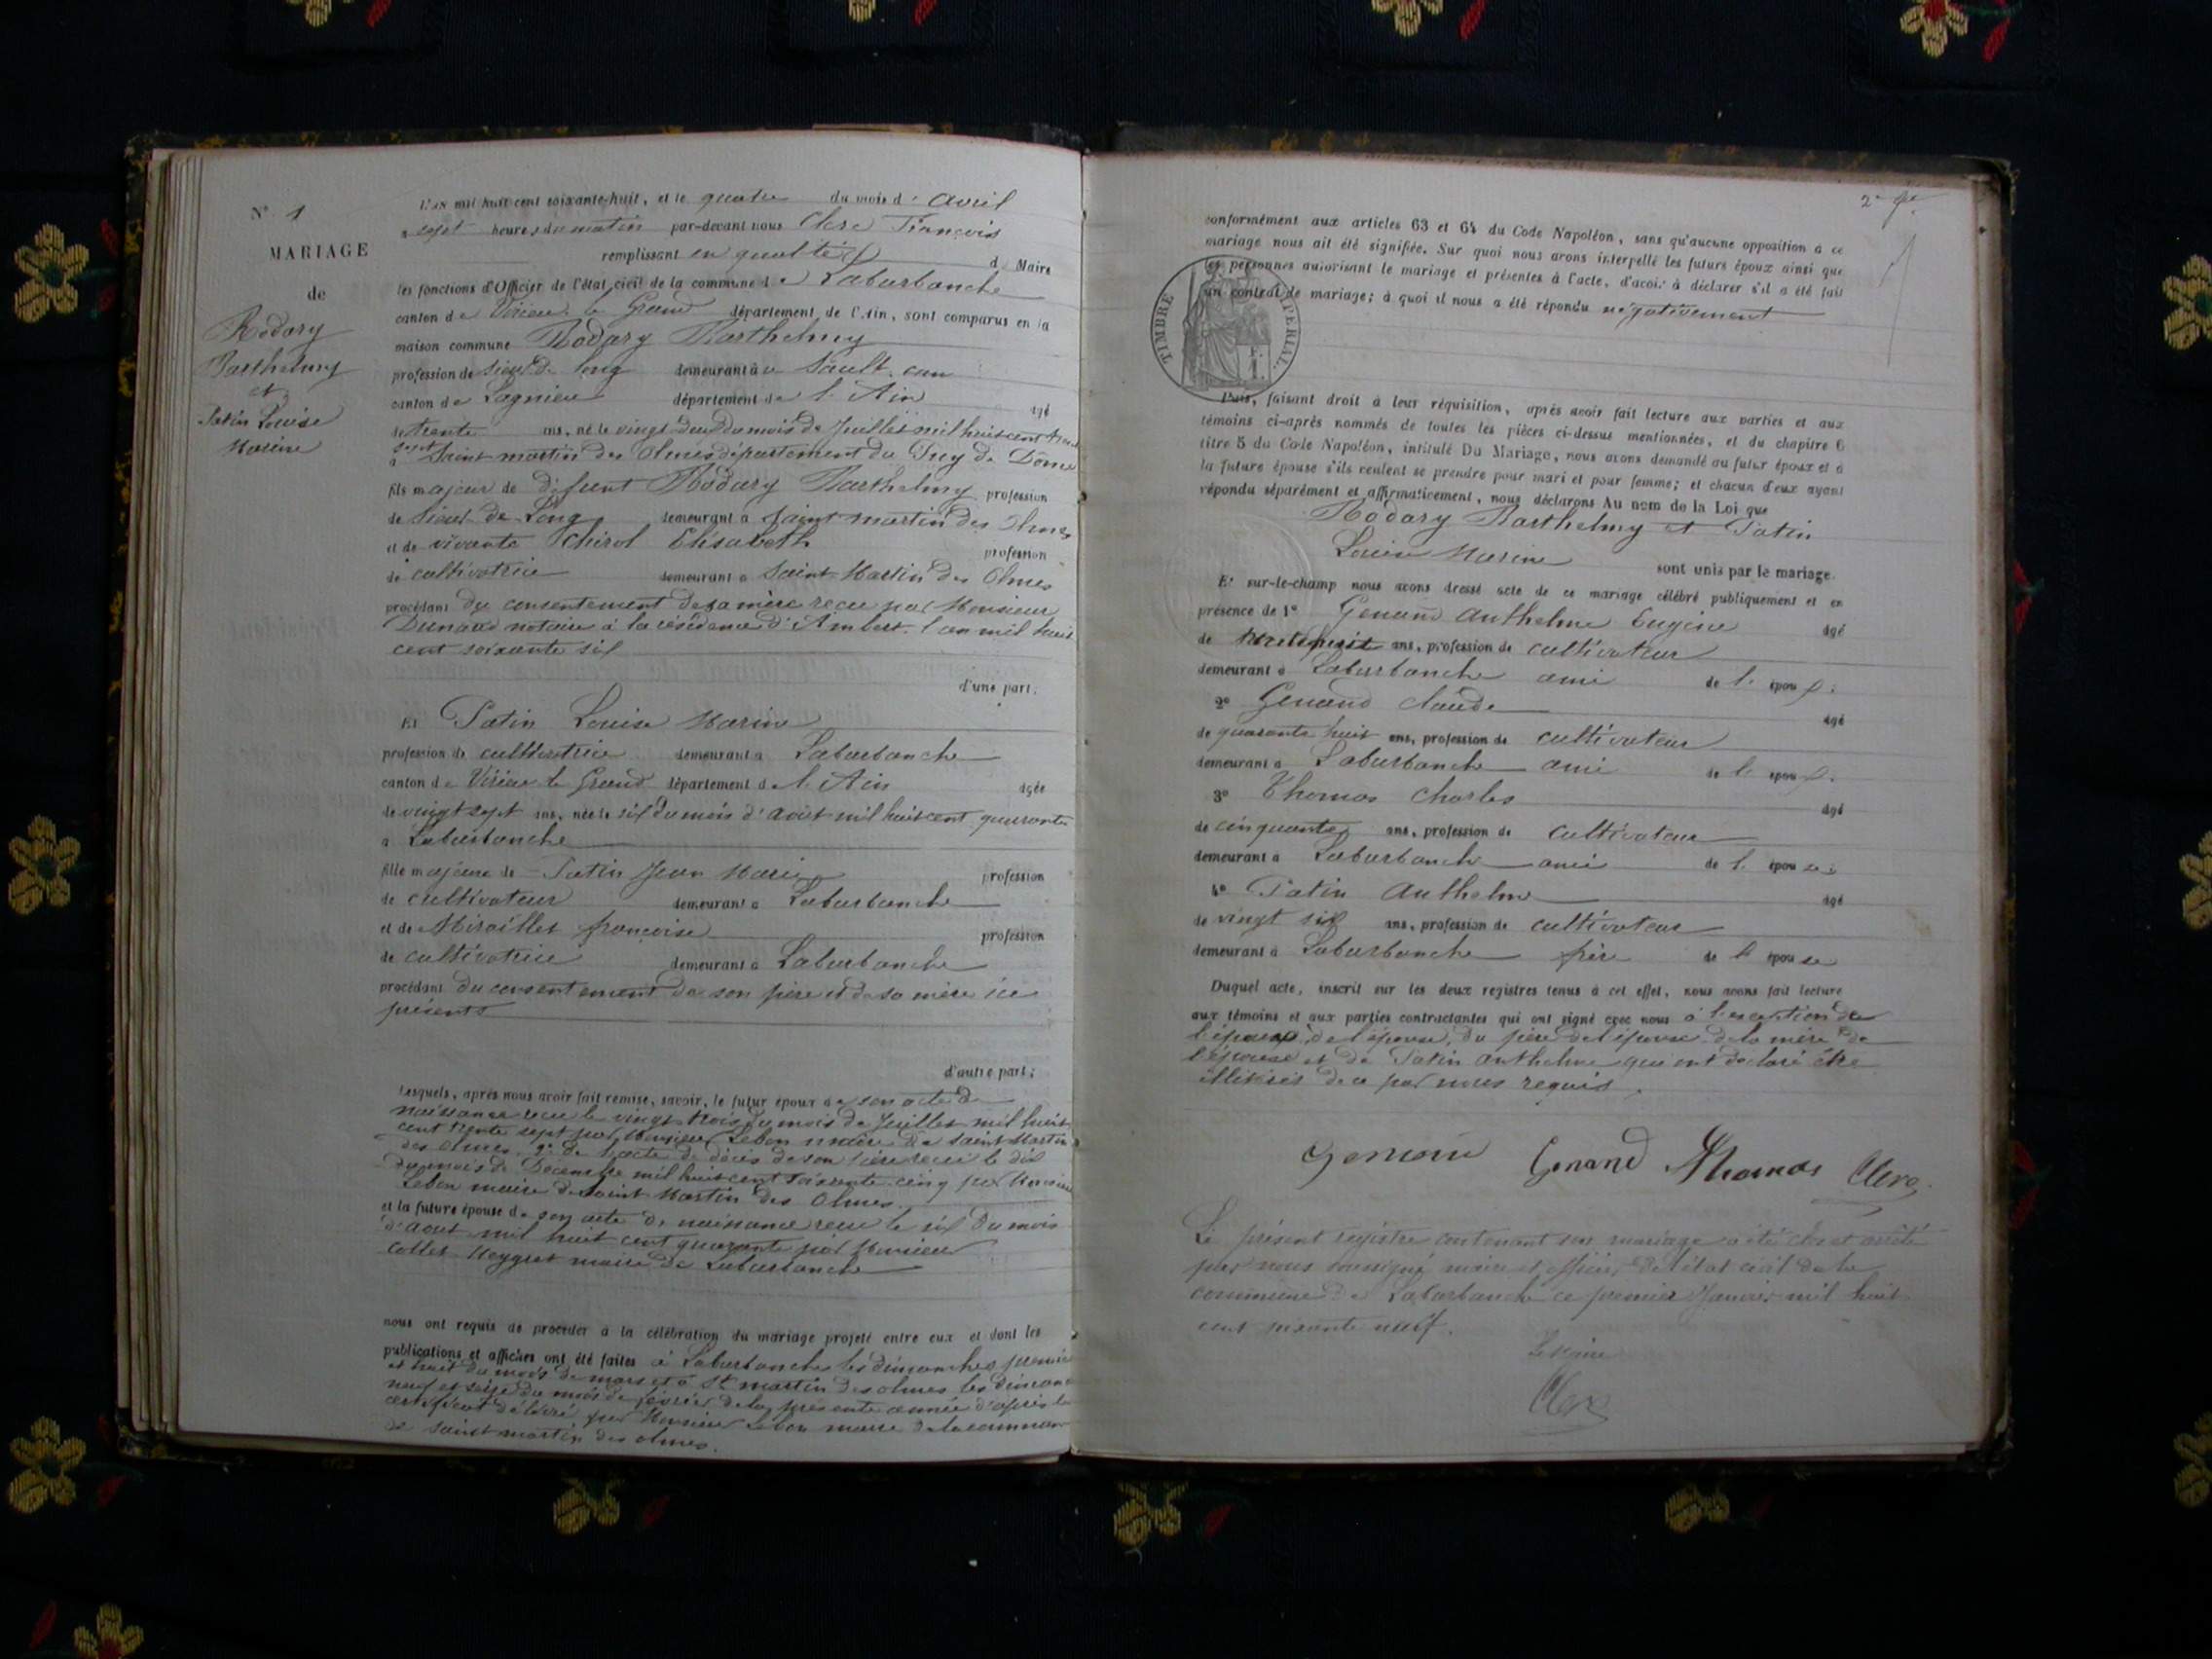 N° 1
MARIAGE
de
Rodary
Barthelmy
et
Patin Louise
Marine
L'an mil huit cent soixante-huit, et le quatre du mois d' avril
a sept heures du matin par-devant nous Clerc François
remplissant en qualité d Maire
les fonctions d'Officier de l'état civil de la commune de Labarbanche
canton de Virieu le Grand département de l'Ain, sont comparus en la
maison commune Rodary Barthelmy
profession de Sieur de long demeurant à Sault
canton de Lagnieu département de l'Ain âgé
de trente ans, né le vingt deux du mois de Juillet mil huit cent trente
sept à Saint martin des Olmes département du Puy de Dôme
fils majeur de défunt Rodary Barthelmy profession
de Sieur de Long demeurant à Saint martin des Olmes
et de vivante Chirol Elisabeth profession
de cultivatrice demeurant à Saint Martin des Olmes
procédant du consentement de sa mère recu par Monsieur
Dunaud notaire à la résidence d'Ambert l'an mil huit
cent soixante six
d'une part;
Et Patin Louise Marine
profession de cultivatrice demeurant à Labarbanche
canton de Virieu le Grand département de l'Ain âgée
de vingt sept ans, née le six du mois d'août mil huit cent quarante
à Labarbanche
fille majeure de Patin Jean Marie profession
de cultivateur demeurant à Labarbanche
et de Miraillet françoise profession
de cultivatrice demeurant à Labarbanche
procédant du consentement de son père et de sa mère ici
présents
d'autre part;
Lesquels, après nous avoir fait remise, savoir, le futur époux de son acte de
naissance recu le vingt trois du mois de Juillet mil huit
cent trente sept par Monsieur Lebon maire de Saint Martin
des olmes 2° de l'acte de décès de son père recu le dix
du mois de Décembre mil huit cent soixante cinq par Monsieur
Lebon maire de Saint Martin des Olmes
et la future épouse de son acte de naissance recu le six du mois
d'aout mil huit cent quarante par Monsieur
Collet Meygret maire de Labarbanche
nous ont requis de procéder à la célébration du mariage projeté entre eux et dont les
publications et affiches ont été faites à Labarbanche les dimanches premier
et huit du mois de mars et à St martin des olmes les dimanches
neuf et seize du mois de février de la présente année d'après le
certificat délivré par Monsieur Lebon maire de la commune
de Saint martin des olmes.
2e
conformément aux articles 63 et 64 du Code Napoléon, sans qu'aucune opposition à ce
mariage nous ait été signifiée. Sur quoi nous avons interpellé les futurs époux ainsi que
les personnes autorisant le mariage et présentes à l'acte, d'avoir à déclarer s'il a été fait
un contrat de mariage; à quoi il nous a été répondu négativement
TIMBRE IMPERIAL
Puis, faisant droit à leur réquisition, après avoir fait lecture aux parties et aux
témoins ci-après nommés de toutes les pièces ci-dessus mentionnées, et du chapitre 6
titre 5 du Code Napoléon, intitulé Du Mariage, nous avons demandé au futur époux et à
la future épouse s'ils veulent se prendre pour mari et pour femme; et chacun d'eux ayant
répondu séparément et affirmativement, nous déclarons Au nom de la Loi que
Rodary Barthelmy et Patin
Louise Marine sont unis par le mariage.
Et sur-le-champ nous avons dressé acte de ce mariage célébré publiquement et en
présence de 1° Genand Anthelme Eugène âgé
de ans, profession de cultivateur
demeurant à Labarbanche ami de l' époux;
2° Genand Claude âgé
de quarante huit ans, profession de cultivateur
demeurant à Labarbanche ami de l' époux;
3° Thomas Charles âgé
de cinquante ans, profession de cultivateur
demeurant à Labarbanche ami de l' épouse;
4° Patin Anthelme âgé
de vingt six ans, profession de cultivateur
demeurant à Labarbanche frère de l' épouse
Duquel acte, inscrit sur les deux registres tenus à cet effet, nous avons fait lecture
aux témoins et aux parties contractantes qui ont signé avec nous à l'exception de
l'époux, de l'épouse, du père de l'épouse de la mère de
l'épouse et de Patin anthelme qui ont déclaré être
illitérés de ce par nous requis.
Genand Genand Thomas Clerc
Le présent registre contenant un mariage a été clos et arrêté
par nous soussigné maire et officier de l'état civil de la
commune de Labarbanche ce premier Janvier mil huit
cent soixante neuf.
Le Maire
Clerc